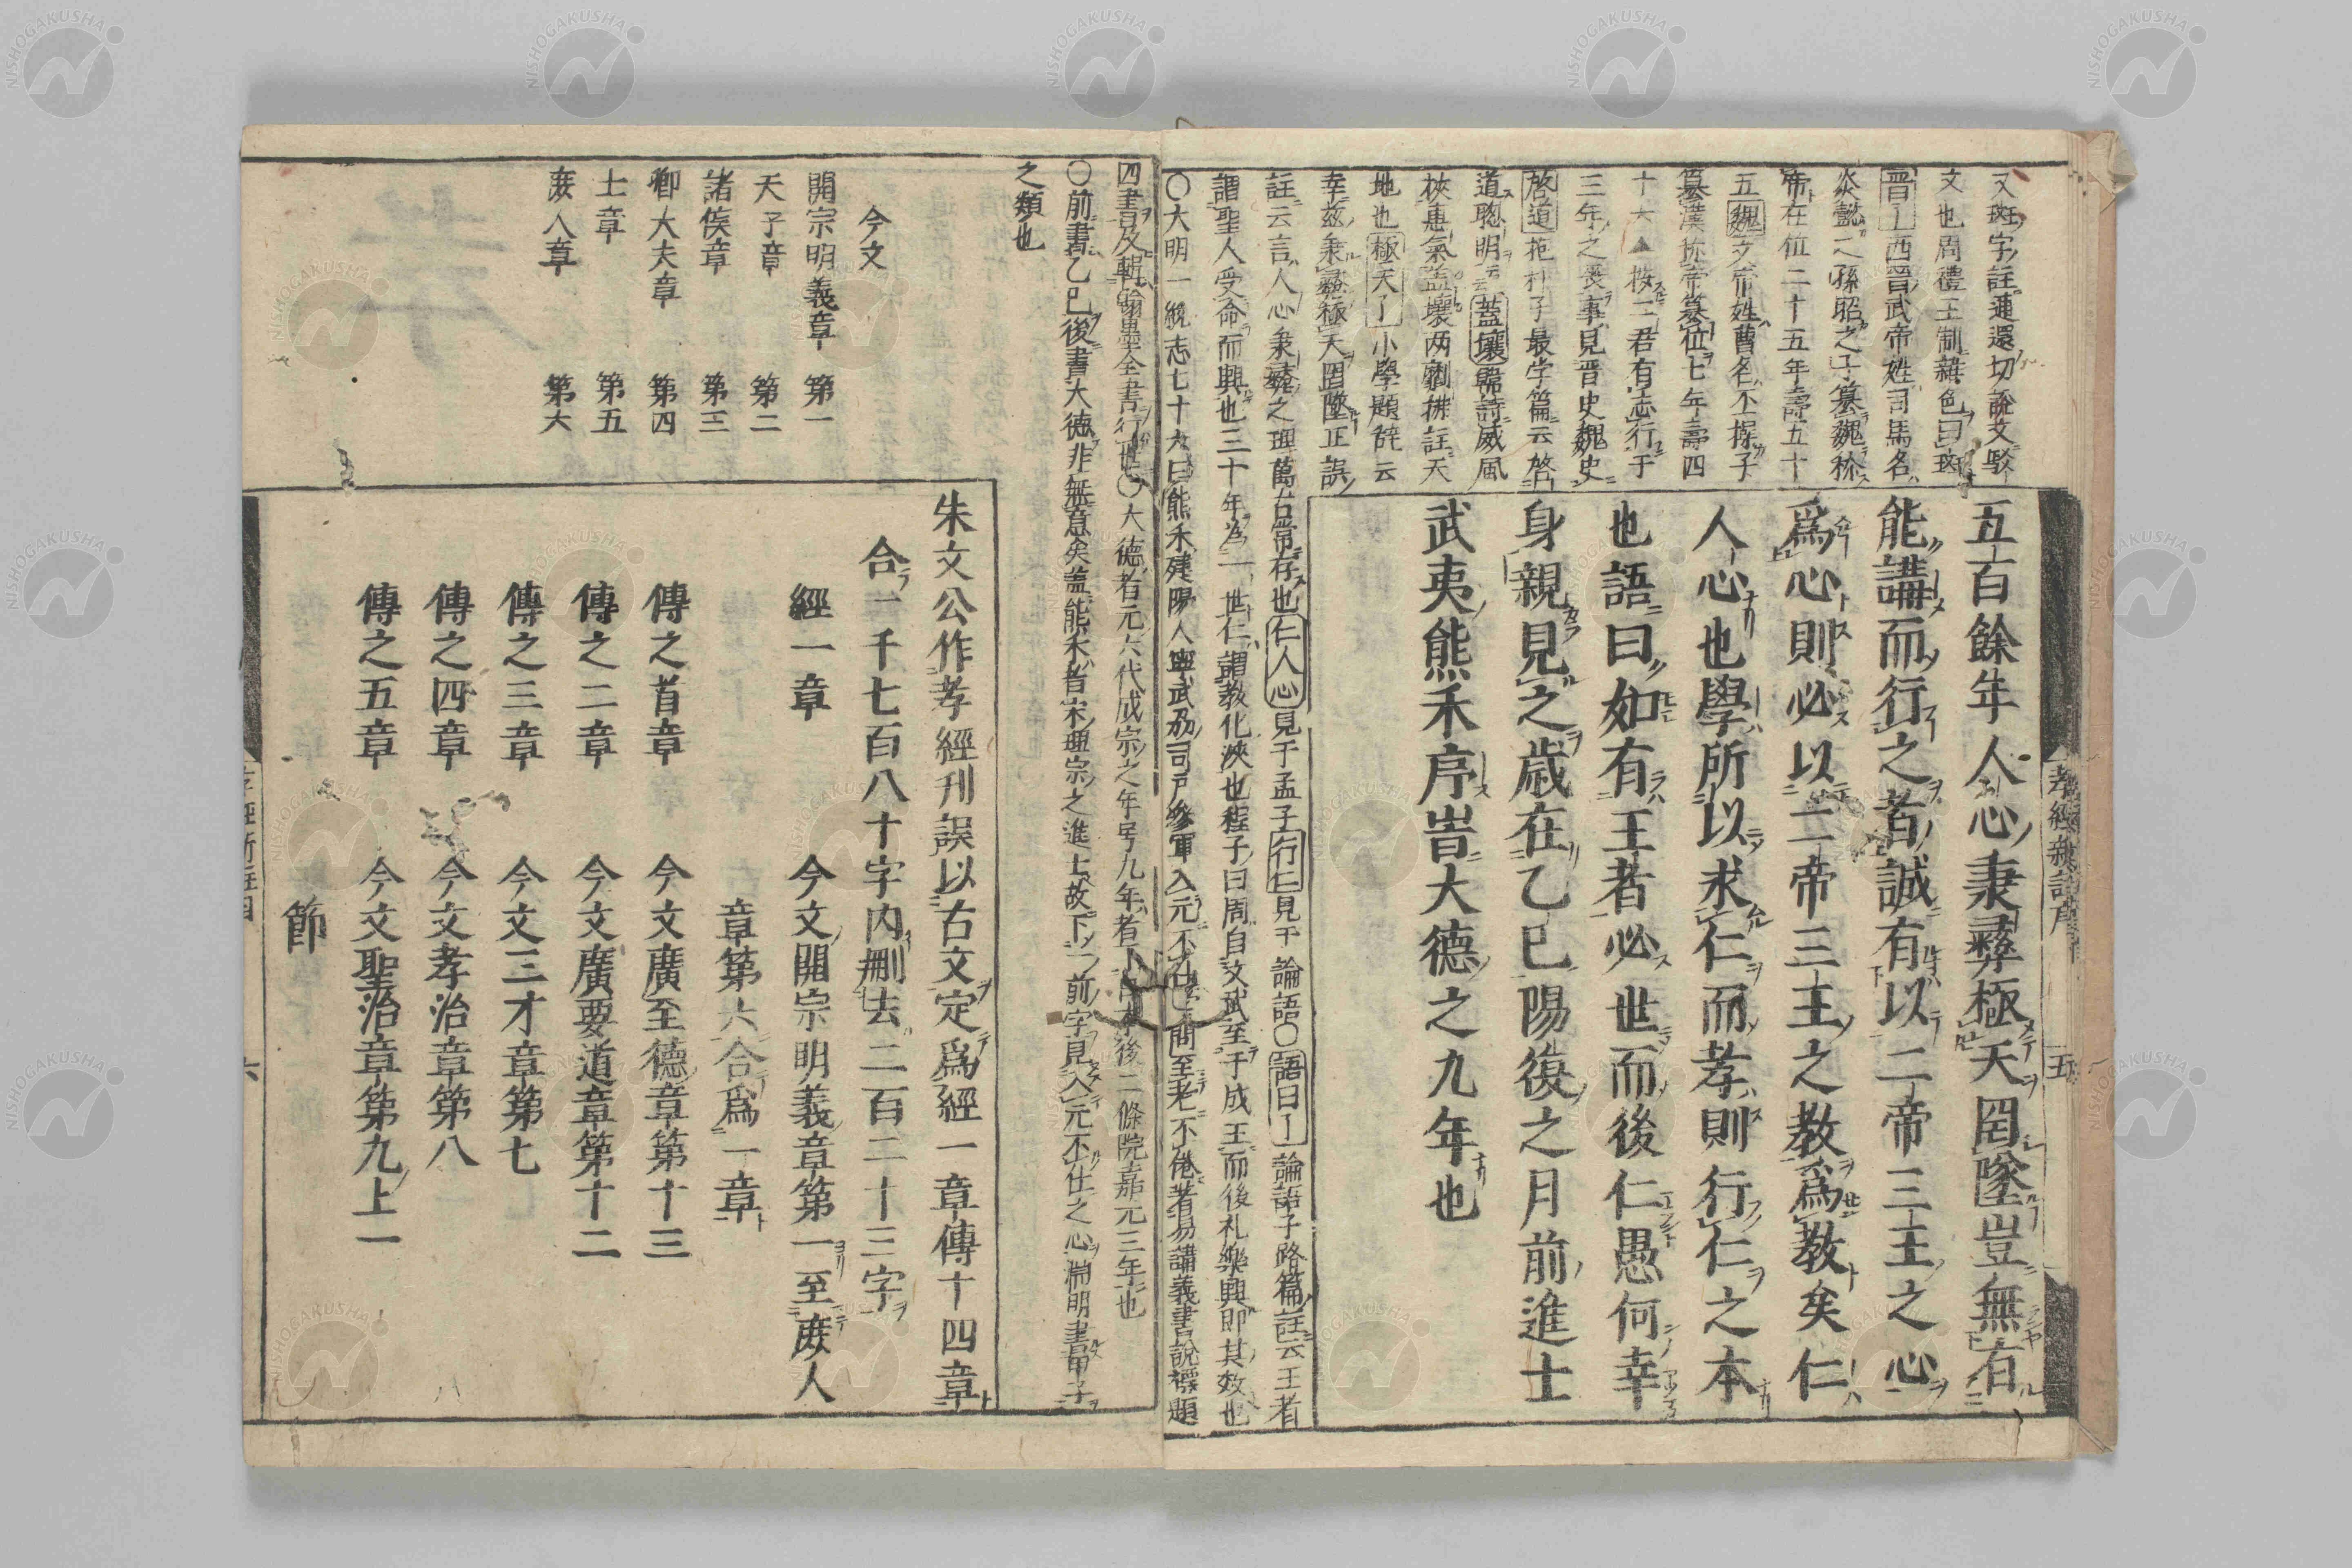 又斑字註通還切說文駁
文也周禮王制雜色曰斑
晋ー西晋武帝姓司馬名
炎懿之孫昭之子簒魏稱
帝在位二十五年壽五十
五魏文帝姓曹名丕操子
簒漢称帝簒位七年壽四
十六▲按二君有志行于
三年之喪事見晋史魏史
啓道抱朴子最学篇云啓
道聡明云云蓋壤韓詩威風
挾惠氣蓋壤两劘拂註天
地也極天了小學題辞云
幸茲秉彝極天罔墜正誤
註云言人心秉彝之理萬古常存也仁人心見于孟子行仁見于論語〇語曰ー論語子路篇註云王者
謂聖人受命而興也三十年為一世仁謂教化浹也程子曰周自文武至于成王而後礼樂興即其效也
〇大明一統志七十六曰熊禾建陽人寧武刕司戸參軍入元不仕間至老不倦著易講義書說標題
五百餘年人心秉彝極天罔墜豈無有
能講而行之者誠有以二帝三王之心
爲心則必以二帝三王之教爲教矣仁
人心也學所以求仁而孝則行仁之本
也語曰如有王者必世而後仁愚何幸
身親見之歳在乙巳陽復之月前進士
武夷熊禾序旹大德之九年也
孝經
五
四書及輯翰墨全書行世〇大德者元六代成宗之年号九年者後二條院嘉元三年也
〇前書乙巳後書大德非無意矣盖熊禾者宋理宗之進士故下前字見入元不仕之心淵明書甲子
之類也
今文
開宗明義章 第一
天子章 第二
諸侯章 第三
卿大夫章 第四
士章 第五
庻人章 第六
朱文公作孝經刊誤以古文定爲經一章傳十四章
合一千七百八十字内刪去二百二十三字
經一章 今文開宗明義章第一至庻人
章第六合爲一章
傳之首章 今文廣至德章第十三
傳之二章 今文廣要道章第十二
傳之三章 今文三才章第七
傳之四章 今文孝治章第八
傳之五章 今文聖治章第九上一
節
六
NISHOGAKUSHA